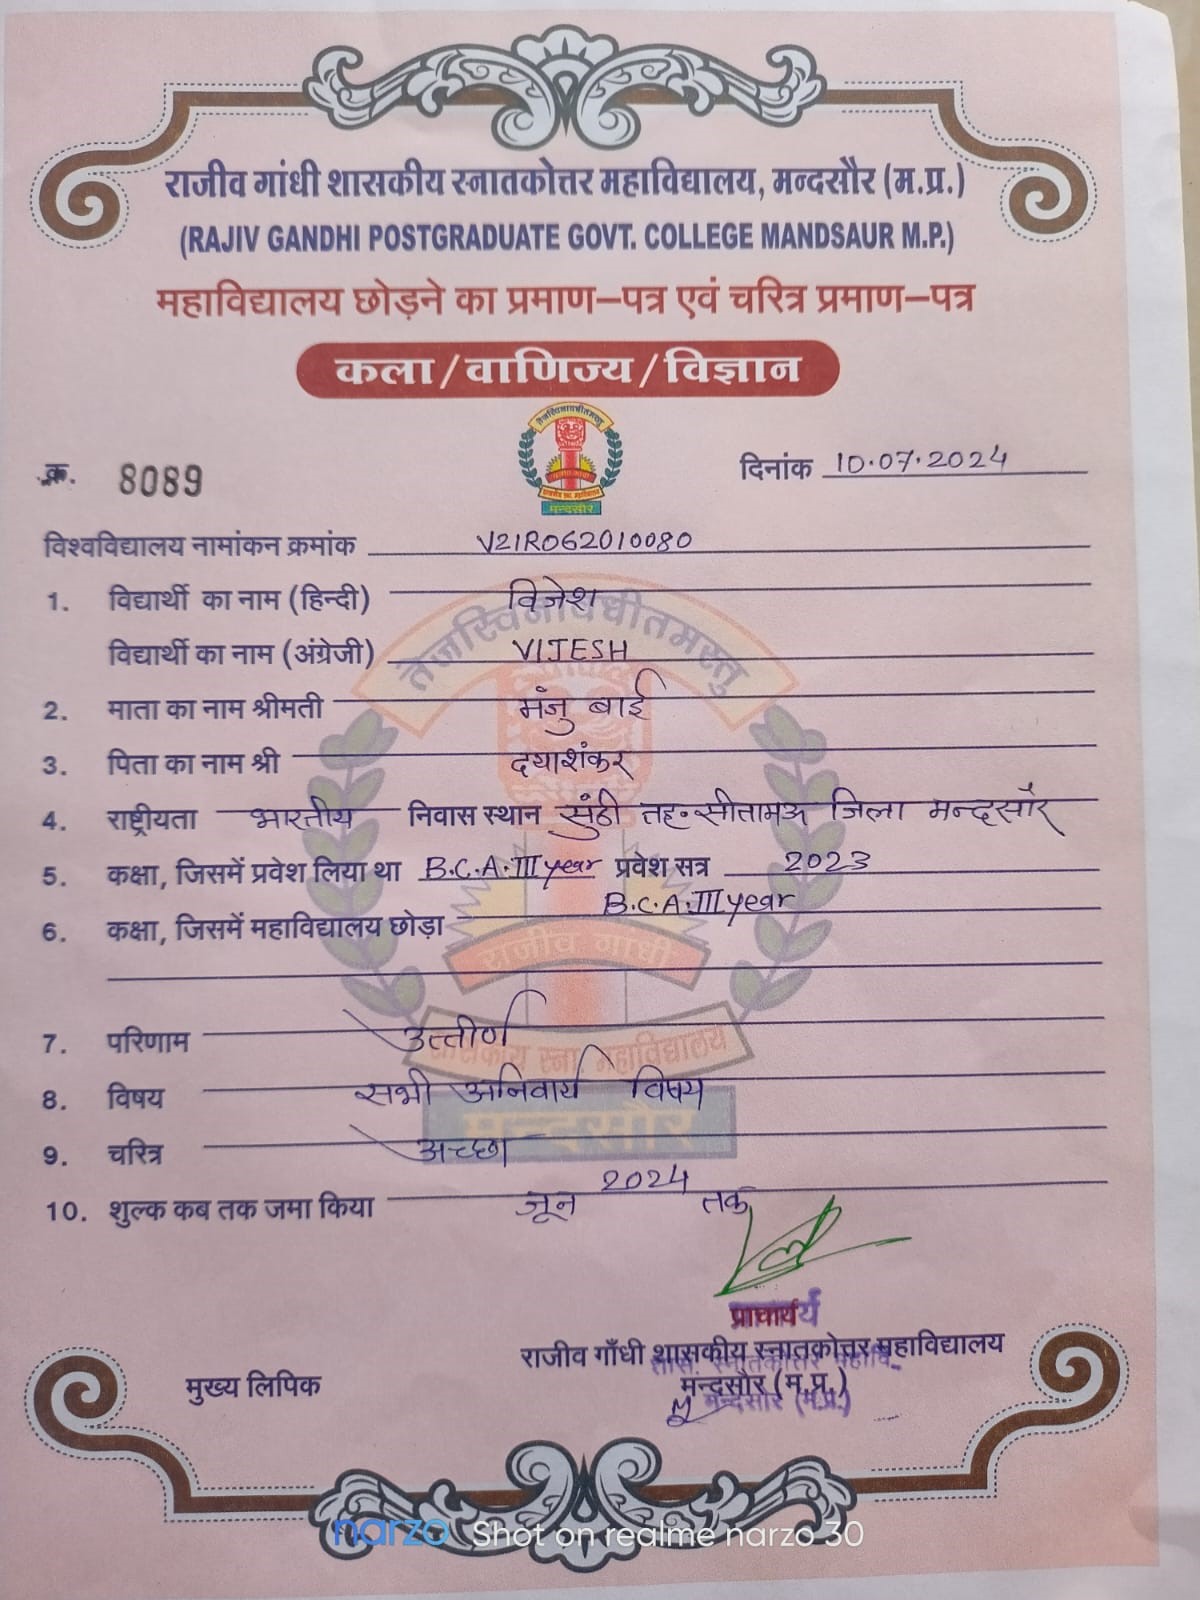 राजीव गांधी शासकीय स्नातकोत्तर महाविद्यालय, मन्दसौर (म.प्र.)
(RAJIV GANDHI POSTGRADUATE GOVT. COLLEGE MANDSAUR M.P.)
महाविद्यालय छोड़ने का प्रमाण–पत्र एवं चरित्र प्रमाण–पत्र
कला/वाणिज्य/विज्ञान
तेजस्विनावधीतमस्तु
मन्दसौर
क्र. 8089 दिनांक 10.07.2024
विश्वविद्यालय नामांकन क्रमांक V21R062010080
1. विद्यार्थी का नाम (हिन्दी) विजेश
विद्यार्थी का नाम (अंग्रेजी) VIJESH
तेजस्विनावधीतमस्तु
2. माता का नाम श्रीमती मंजु बाई
3. पिता का नाम श्री दयाशंकर
4. राष्ट्रीयता भारतीय निवास स्थान सुंठी तह. सीतामऊ जिला मन्दसौर
5. कक्षा, जिसमें प्रवेश लिया था B.C.A. III year प्रवेश सत्र 2023
6. कक्षा, जिसमें महाविद्यालय छोड़ा B.C.A. III year
राजीव गांधी
7. परिणाम उत्तीर्ण
शासकीय स्ना. महाविद्यालय
8. विषय सभी अनिवार्य विषय
मन्दसौर
9. चरित्र अच्छा
10. शुल्क कब तक जमा किया जून 2024 तक
प्राचार्य
राजीव गाँधी शासकीय स्नातकोत्तर महाविद्यालय
मुख्य लिपिक मन्दसौर (म.प्र.)
मन्दसौर (म.प्र.)
narzo Shot on realme narzo 30